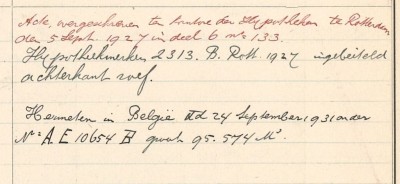 Acte, overgeschreven ten kantore der Hypotheken te Rotterdam
den 5 Sept. 1927 in deel 6 no 133.
Hypotheekmerken 2313. B. Rott. 1927 ingebeiteld
achterkant roef.
Hermeten in België d 24 September 1931 onder
No = A.E 10654 B groot 95.574 M³